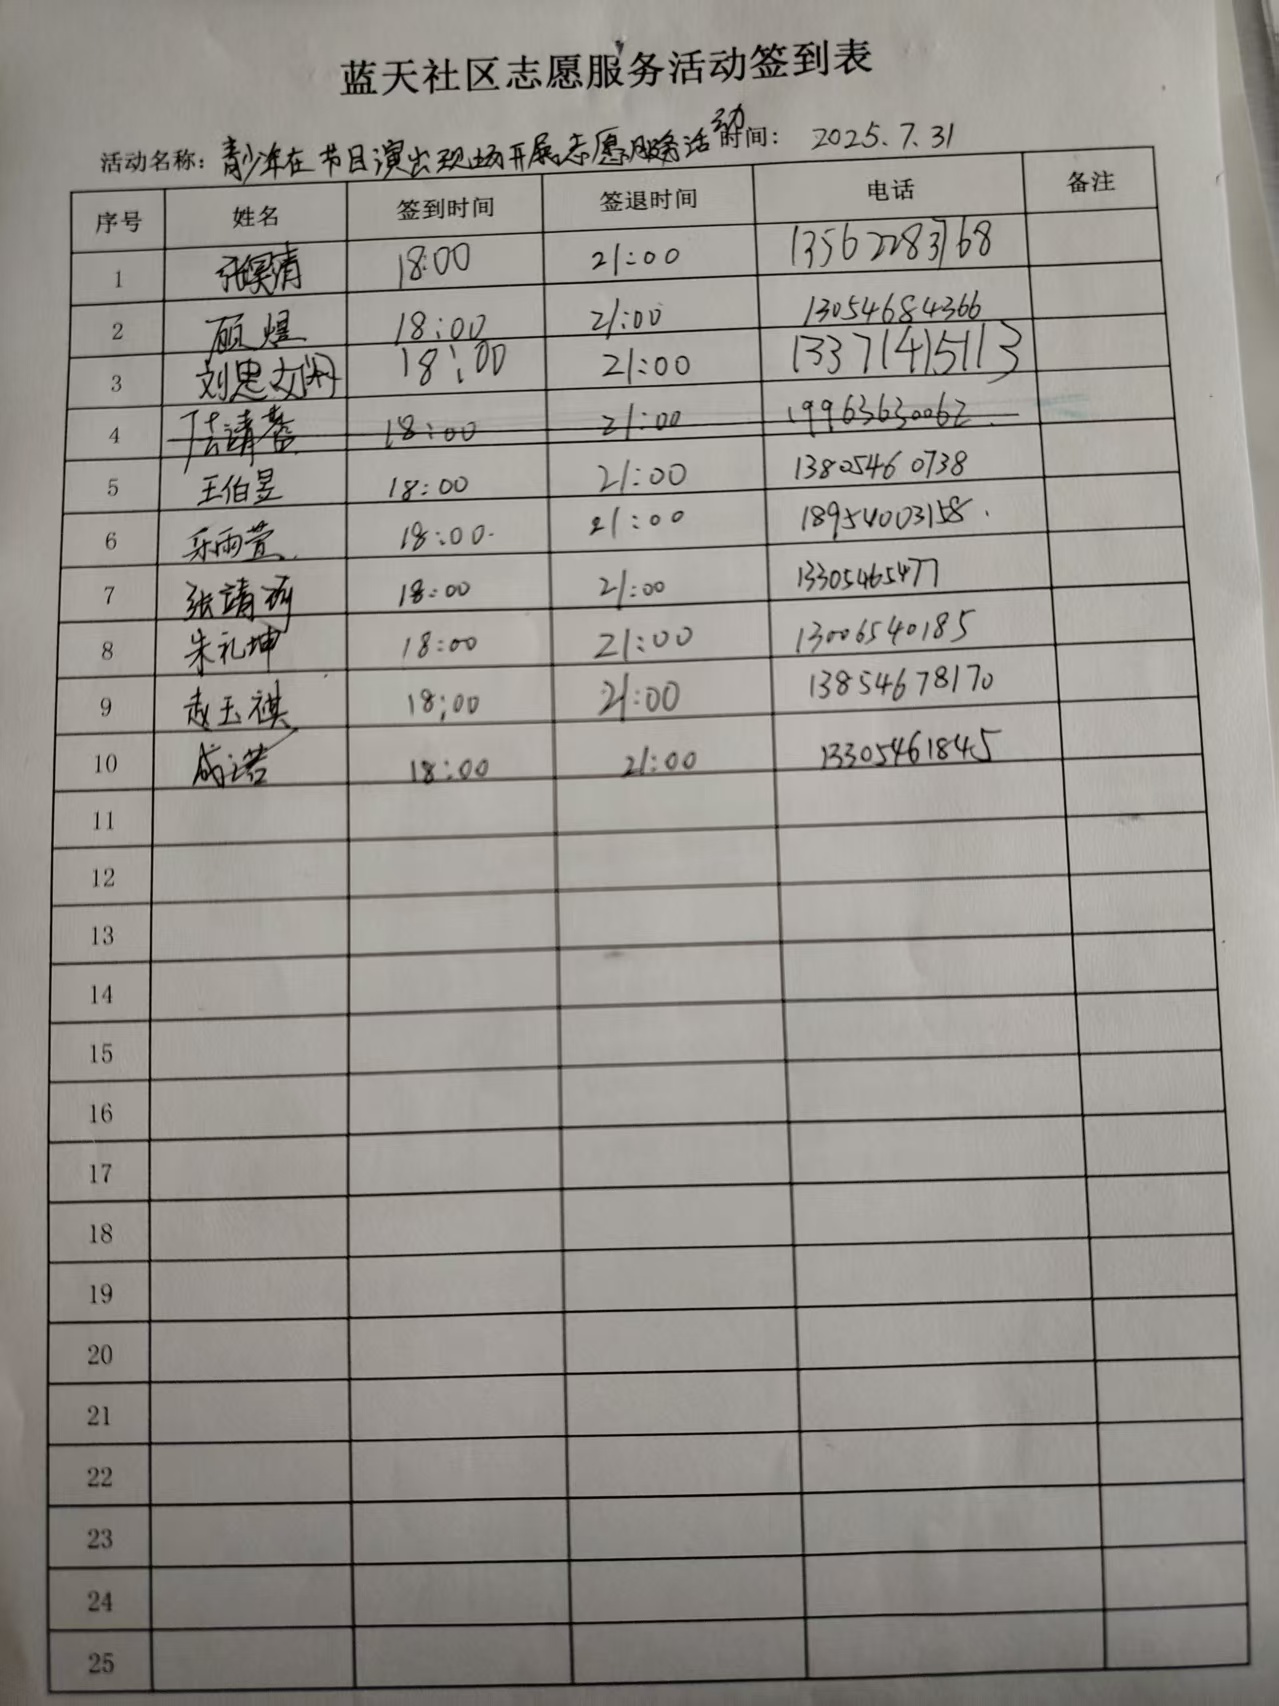 蓝天社区志愿服务活动签到表
活动名称：青少年在节目演出现场开展志愿服务活动 时间： 2025.7.31
序号 姓名 签到时间 签退时间 电话 备注
1 张昊清 18:00 21:00 13562283768
2 顾煜 18:00 21:00 13054684366
3 刘思 18:00 21:00 13371415113
4 18:00 21:00 19963630062
5 王伯昱 18:00 21:00 13805460738
6 雨萱 18:00 21:00 18954003158
7 张靖 18:00 21:00 13305465477
8 朱礼坤 18:00 21:00 13006540185
9 赵玉祺 18:00 21:00 13854678170
10 成诺 18:00 21:00 13305461845
11
12
13
14
15
16
17
18
19
20
21
22
23
24
25